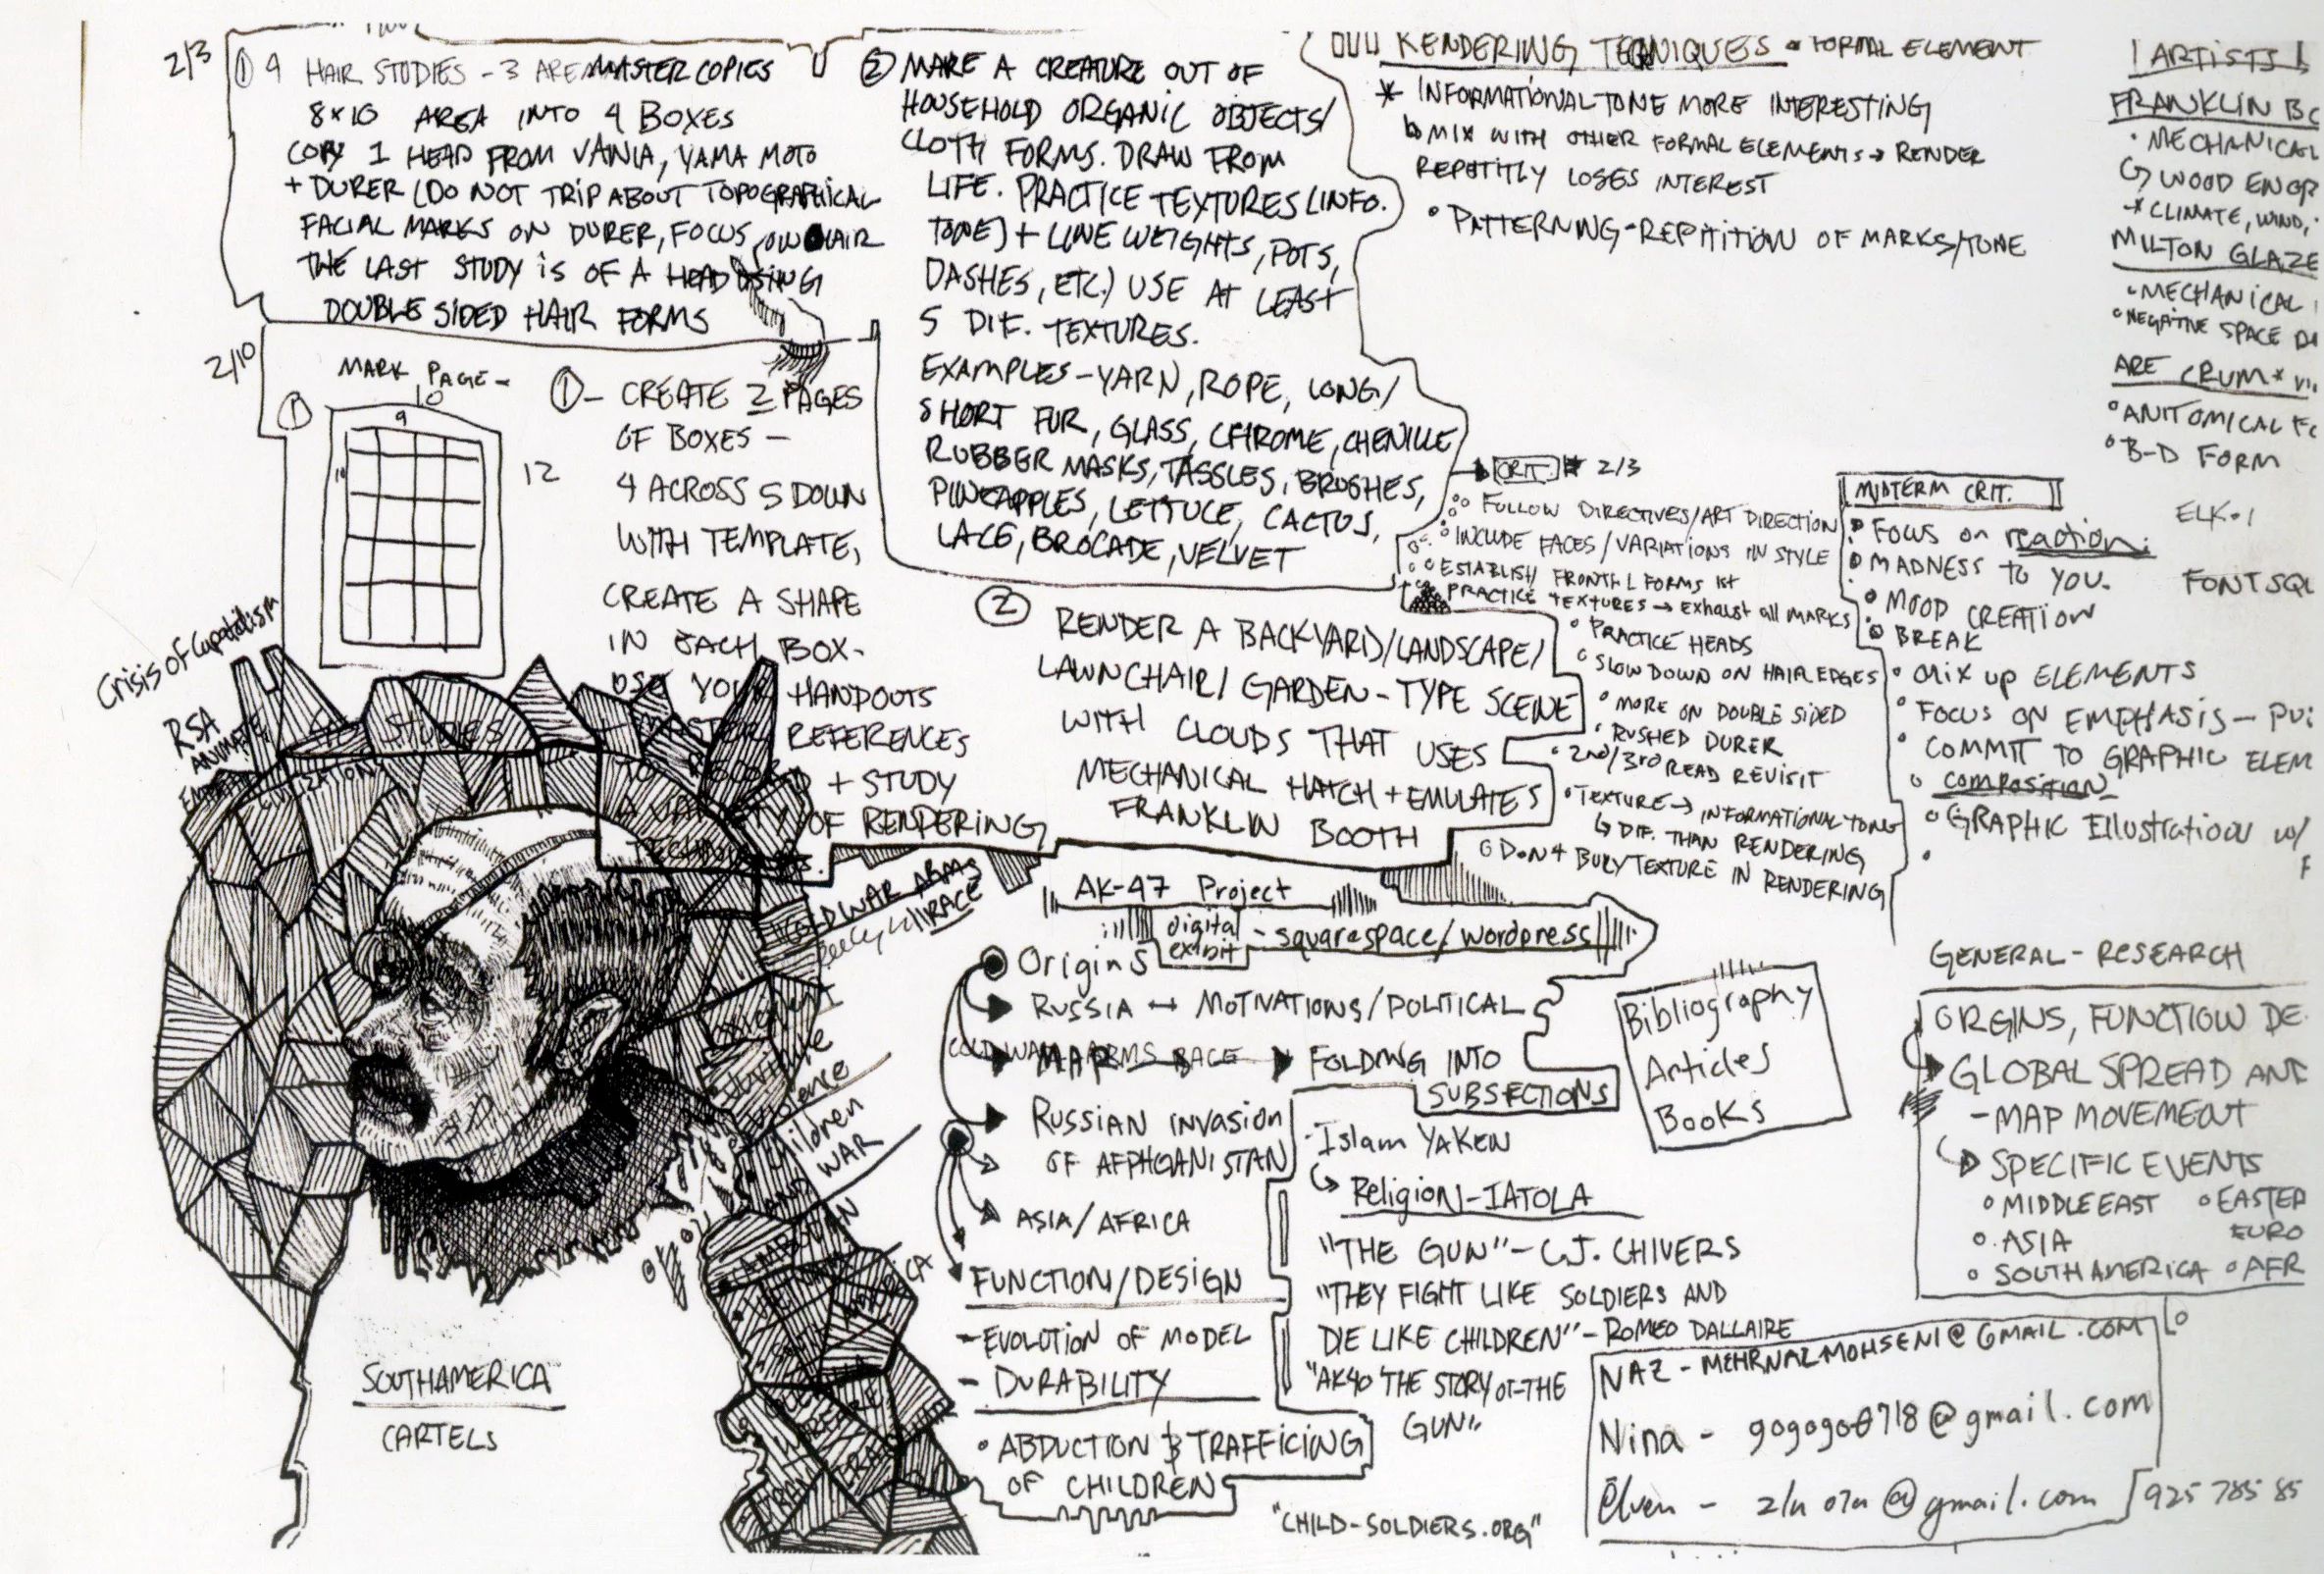 2/3
① 9 HAIR STUDIES - 3 ARE MASTER COPIES
8×10 AREA INTO 4 BOXES
COPY 1 HEAD FROM VANIA, YAMA MOTO
+ DURER (DO NOT TRIP ABOUT TOPOGRAPHICAL
FACIAL MARKS ON DURER, FOCUS ON HAIR
THE LAST STUDY IS OF A HEAD USING
DOUBLE SIDED HAIR FORMS
② MAKE A CREATURE OUT OF
HOUSEHOLD ORGANIC OBJECTS/
CLOTH FORMS. DRAW FROM
LIFE. PRACTICE TEXTURES (INFO.
TONE) + LINE WEIGHTS, DOTS,
DASHES, ETC.) USE AT LEAST
5 DIF. TEXTURES.
EXAMPLES - YARN, ROPE, LONG/
SHORT FUR, GLASS, CHROME, CHENILLE
RUBBER MASKS, TASSLES, BRUSHES,
PINEAPPLES, LETTUCE, CACTUS,
LACE, BROCADE, VELVET
RENDERING TECQNIQUES • FORMAL ELEMENT
* INFORMATIONAL TONE MORE INTERESTING
↳ MIX WITH OTHER FORMAL ELEMENTS → RENDER
REPETITLY LOSES INTEREST
• PATTERNING - REPITITION OF MARKS/TONE
ARTISTS
FRANKLIN BO
• MECHANICAL
↳ WOOD ENGR
* CLIMATE, WIND,
MILTON GLAZE
• MECHANICAL
• NEGATIVE SPACE
ARE CRUM *
• ANITOMICAL
• B-D FORM
ELK.1
FONTSQU
2/10
MARK PAGE -
10
9
12
① - CREATE 2 PAGES
OF BOXES -
4 ACROSS 5 DOWN
WITH TEMPLATE,
CREATE A SHAPE
IN EACH BOX -
USE YOUR HANDOUTS
STUDIES + MASTER REFERENCES
TO RECORD + STUDY
A VARIETY OF RENDERING
TECHNIQUES.
② RENDER A BACKYARD/LANDSCAPE/
LAWNCHAIR/GARDEN-TYPE SCENE
WITH CLOUDS THAT USES
MECHANICAL HATCH + EMULATES
FRANKLIN BOOTH
CRIT * 2/3
• FOLLOW DIRECTIVES/ART DIRECTION
• INCLUDE FACES/VARIATIONS IN STYLE
• ESTABLISH FRONTAL FORMS 1st
PRACTICE TEXTURES → Exhaust all MARKS
• PRACTICE HEADS
• SLOW DOWN ON HAIR EDGES
• MORE ON DOUBLE SIDED
• RUSHED DURER
• 2nd/3rd READ REVISIT
• TEXTURE → INFORMATIONAL TONE
↳ DIF. THAN RENDERING
• DON4 BURY TEXTURE IN RENDERING
MIDTERM CRIT.
• FOCUS on reaction.
• MADNESS to YOU.
• MOOD CREATION
• BREAK
• Mix up ELEMENTS
• FOCUS ON EMPHASIS -
• COMMIT TO GRAPHIC ELEM
• COMPOSITION
• GRAPHIC Illustration w/
Crisis of Capatolism
RSA
ANIMATE
COLD WAR ARMS
RACE
Juvinile
violence
children
AND WAR
SOUTHAMERICA
CARTELS
AK-47 Project
digital exibit - squarespace/wordpress
Origins
RUSSIA ↔ MOTIVATIONS/POLITICAL
COLD WAR ARMS RACE
MAP → FOLDING INTO
SUBSECTIONS
RUSSIAN INVASION
OF AFPHGANISTAN
ASIA/AFRICA
FUNCTION/DESIGN
- EVOLUTION OF MODEL
- DURABILITY
• ABDUCTION & TRAFFICING
OF CHILDREN
- Islam YAKEN
↳ Religion - IATOLA
"THE GUN" - C.J. CHIVERS
"THEY FIGHT LIKE SOLDIERS AND
DIE LIKE CHILDREN" - ROMEO DALLAIRE
"AK40 THE STORY OF THE
GUN"
"CHILD-SOLDIERS.ORG"
Bibliography
Articles
Books
GENERAL - RESEARCH
ORGINS, FUNCTION DE
GLOBAL SPREAD AND
- MAP MOVEMENT
SPECIFIC EVENTS
• MIDDLE EAST • EASTER
EURO
• ASIA
• SOUTH AMERICA • AFR
NAZ - MEHRNAZMOHSENI@GMAIL.COM
Nina - gogogo0718@gmail.com
@gmail.com
925 785 85